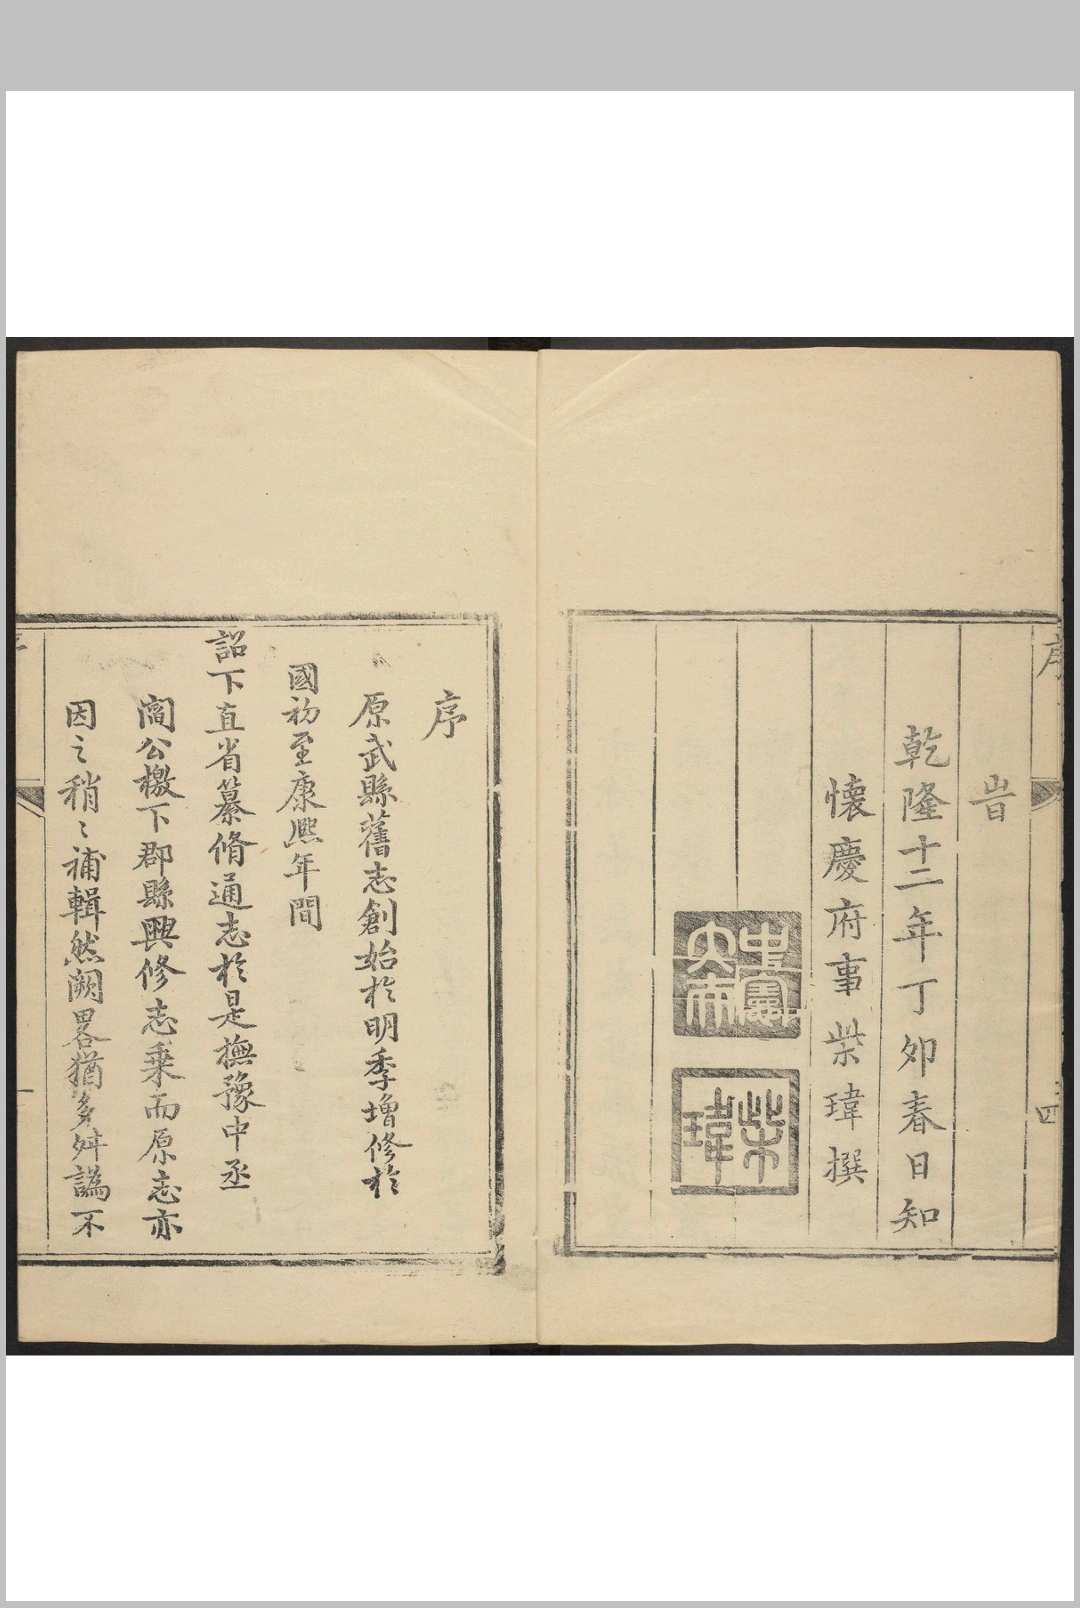 旹
乾隆十二年丁卯春日知
懷慶府事柴瑋撰
中憲大夫
柴瑋
四
序
原武縣舊志創始於明季增修於
國初至康熙年間
詔下直省纂脩通志於是撫豫中丞
閻公檄下郡縣興修志乗而原志亦
因之稍〻補輯然闕畧猶多舛譌不